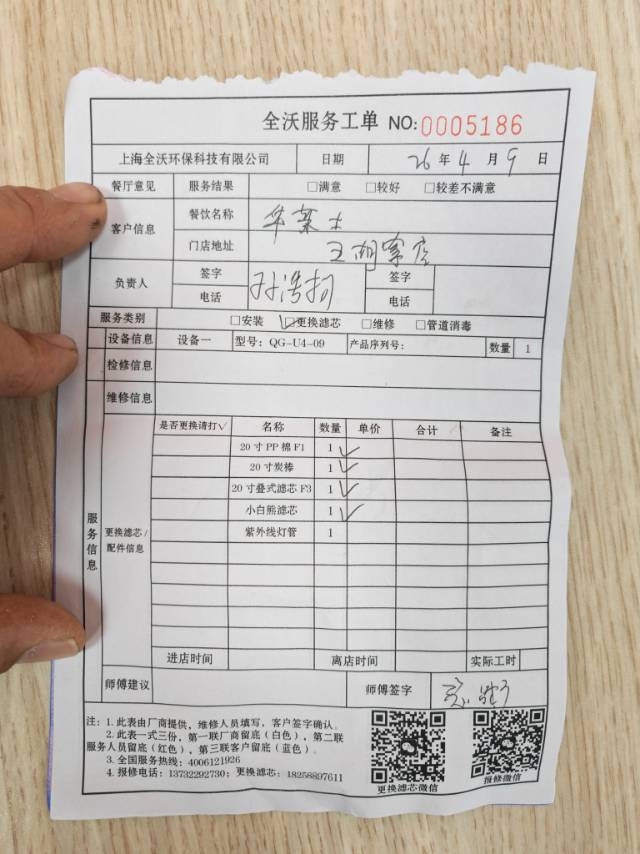 全沃服务工单 NO:0005186
上海全沃环保科技有限公司 日期 26年4月9日
餐厅意见 服务结果 □满意 □较好 □较差不满意
客户信息 餐饮名称 华莱士
门店地址
负责人 签字 签字
电话 电话
服务类别 □安装 ☑更换滤芯 □维修 □管道消毒
设备信息 设备一 型号: QG-U4-09 产品序列号: 数量 1
检修信息
维修信息
服务信息 更换滤芯/配件信息
是否更换请打√ 名称 数量 单价 合计 备注
20寸PP棉F1 1 ✓
20寸炭棒 1 ✓
20寸叠式滤芯F3 1 ✓
小白熊滤芯 1 ✓
紫外线灯管 1
进店时间 离店时间 实际工时
师傅建议 师傅签字
注: 1. 此表由厂商提供, 维修人员填写, 客户签字确认。
2. 此表一式三份, 第一联厂商留底(白色), 第二联
服务人员留底(红色), 第三联客户留底(蓝色)。
3. 全国服务热线: 4006121926
4. 报修电话: 13732292730; 更换滤芯: 18258897611
更换滤芯微信 报修微信